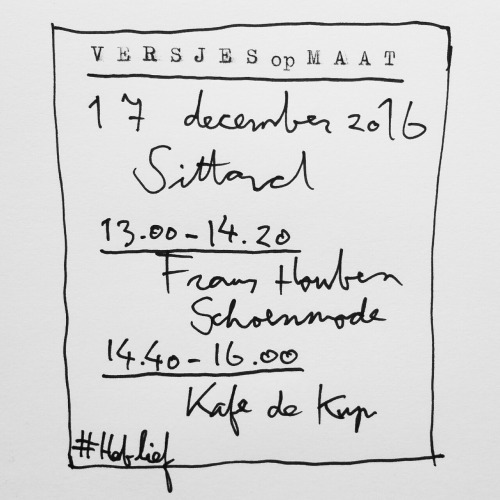 VERSJES op MAAT
17 december 2016
Sittard
13.00-14.20
Frans Houben
Schoenmode
14.40-16.00
Kafe de Kup